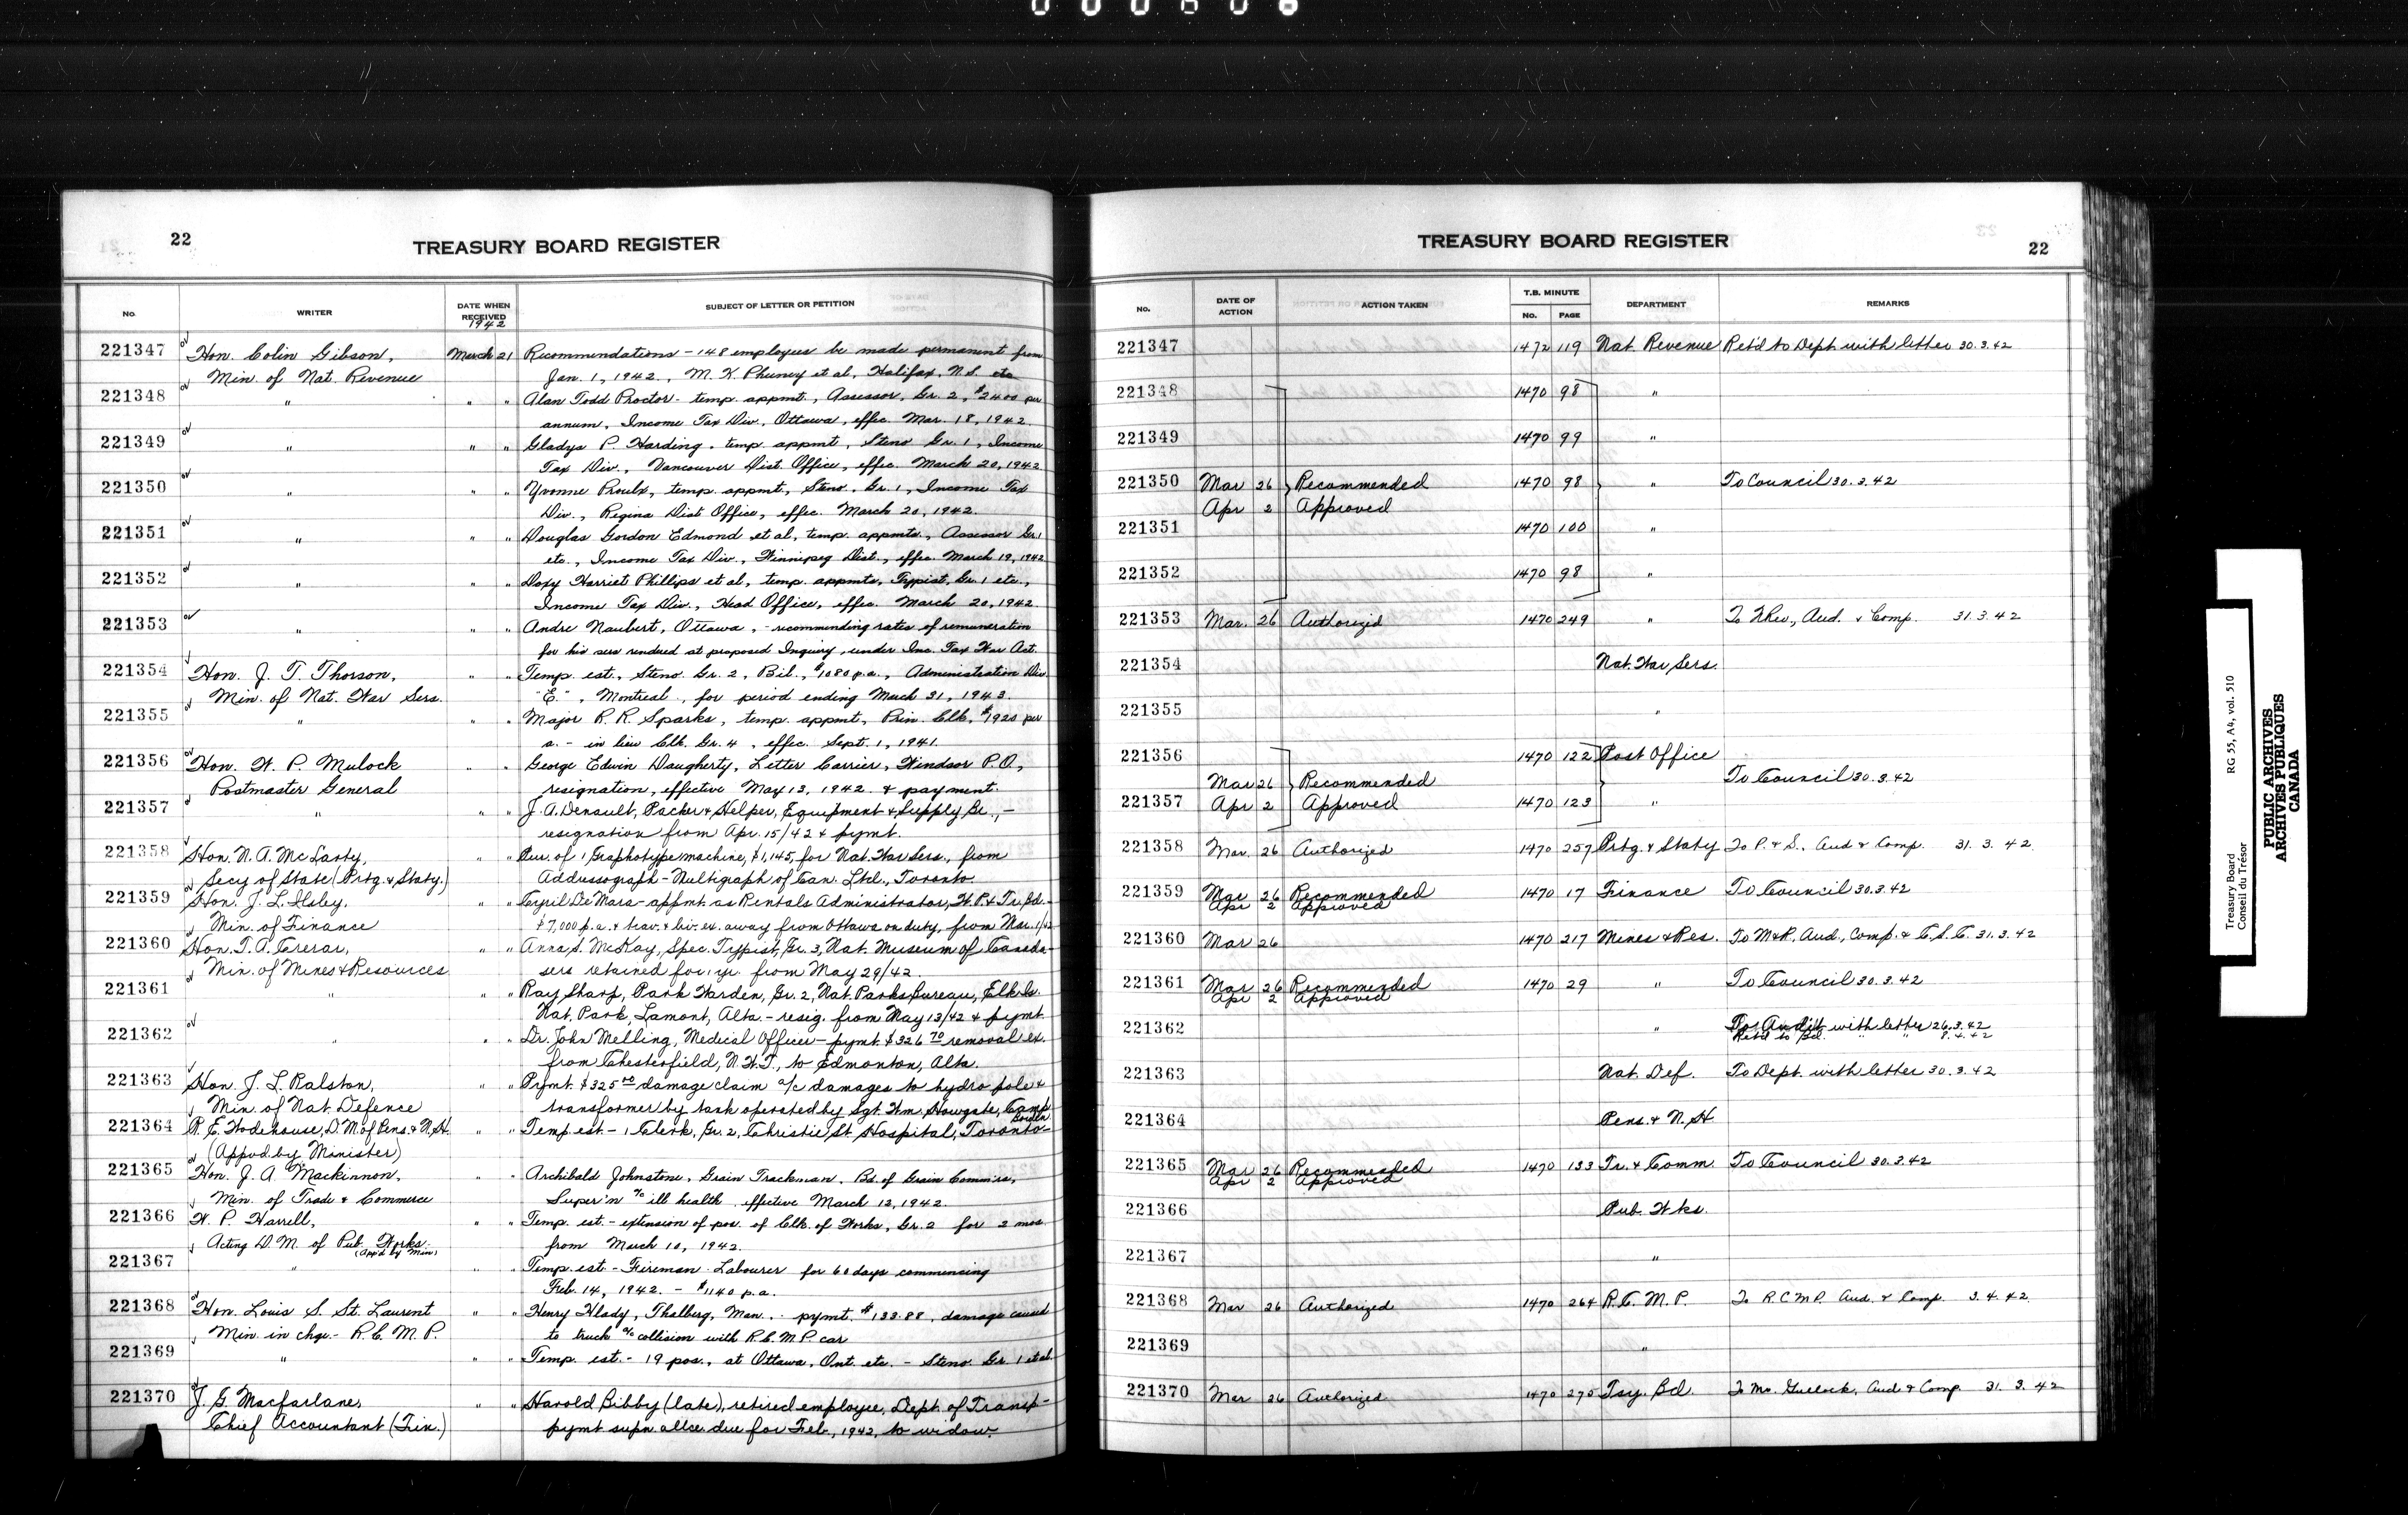 000606
22
TREASURY BOARD REGISTER
No. WRITER DATE WHEN RECEIVED 1942 SUBJECT OF LETTER OR PETITION
221347 Hon. Colin Gibson, March 21 Recommendations - 148 employees be made permanent from
Min. of Nat. Revenue Jan. 1, 1942, M. K. et al, Halifax, N.S. etc
221348 " " " Alan Todd Proctor - temp. appmt., Assessor, Gr. 2, $2400 per
annum, Income Tax Div., Ottawa, effec. Mar. 18, 1942.
221349 " " " Gladys P. Harding, temp. appmt, Steno Gr. 1, Income
Tax Div., Vancouver Dist. Office, effec. March 20, 1942
221350 " " " Yvonne Proulx, temp. appmt, Steno. Gr. 1, Income Tax
Div., Regina Dist Office, effec. March 20, 1942.
221351 " " " Douglas Gordon Edmond et al, temp. appmts., Assessor Gr. 1
etc., Income Tax Div., Winnipeg Dist., effec. March 19, 1942
221352 " " " Doxy Harriet Phillips et al, temp. appmts, Typist, Gr. 1 etc.,
Income Tax Div., Head Office, effec. March 20, 1942.
221353 " " " Andre Naubert, Ottawa, - recommending rates of remuneration
for his sers rendered at proposed Inquiry, under Inc. Tax War Act.
221354 Hon. J. T. Thorson, " " Temp est., Steno Gr. 2, Bil., $1080 p.a., Administration Div
Min. of Nat. War Sers. "E", Montreal, for period ending March 31, 1943.
221355 " " " Major R. R. Sparks, temp. appmt, Prin. Clk, $1920 per
a. - in lieu Clk. Gr. 4, effec. Sept. 1, 1941.
221356 Hon. W. P. Mulock " " George Edwin Daugherty, Letter Carrier, Windsor P.O.,
Postmaster General resignation, effective May 13, 1942 & payment.
221357 " " " J. A. Denault, Packer & Helper, Equipment & Supply Br., -
resignation from Apr. 15/42 & pymt.
221358 Hon. N. A. McLarty, " " Pur. of 1 Graphotype machine, $1,145, for Nat. War Sers., from
Secy of State (Prtg. & Staty.) Addressograph - Multigraph of Can. Ltd., Toronto.
221359 Hon. J. L. Ilsley, " " Cyril De Mara - appmt. as Rentals Administrator, W.P. & Tr. Bd. -
Min. of Finance $7,000 p.a. & trav. & liv. ex. away from Ottawa on duty, from Mar. 1/42
221360 Hon. T. A. Crerar, " " Anna S. McKay, Spec. Typist, Gr. 3, Nat. Museum of Canada -
Min. of Mines & Resources sers retained for 1 yr. from May 29/42.
221361 " " " Ray Sharp, Park Warden, Gr. 2, Nat. Parks Bureau, Elk Is.
Nat. Park, Lamont, Alta. - resig. from May 13/42 & pymt
221362 " " " Dr. John Melling, Medical Officer - pymt. $326.70 removal ex.
from Chesterfield, N.W.T., to Edmonton, Alta.
221363 Hon. J. L. Ralston, " " Pymt. $325.00 damage claim a/c damages to hydro pole &
Min. of Nat. Defence transformer by tank operated by Sgt. Wm. Howgate, Camp Borden
221364 R. E. Wodehouse, D.M. of Pens. & N.H. " " Temp. est. - 1 Clerk, Gr. 2, Christie St Hospital, Toronto -
(Appvd. by Minister)
221365 Hon. J. A. Mackinnon, " " Archibald Johnstone, Grain Trackman, Bd. of Grain Commrs,
Min. of Trade & Commerce Super'n a/c ill health effective March 12, 1942.
221366 W. P. Harrell, " " Temp. est. - extension of pos. of Clk. of Works, Gr. 2 for 2 mos.
Acting D.M. of Pub. Works. (App'd by Min) from March 10, 1942.
221367 " " " Temp est. - Fireman - Labourer for 60 days commencing
Feb. 14, 1942. - $1140 p.a.
221368 Hon. Louis S. St. Laurent " " Henry Hlady, Thalberg, Man. - pymt. $133.88, damage caused
Min. in chge. - R.C.M.P. to truck a/c collision with R.C.M.P. car
221369 " " " Temp. est. - 19 pos., at Ottawa, Ont. etc. - Steno Gr. 1 et al.
221370 J. G. Macfarlane, " " Harold Bibby (late), retired employee, Dept. of Transp -
Chief Accountant (Fin.) pymt supn allce due for Feb., 1942, to widow.
TREASURY BOARD REGISTER
22
No. DATE OF ACTION ACTION TAKEN T.B. MINUTE No. PAGE DEPARTMENT REMARKS
221347 1472 119 Nat. Revenue Ret'd to Dept. with letter 30.3.42
221348 1470 98 "
221349 1470 99 "
221350 Mar 26 Recommended 1470 98 " To Council 30.3.42
Apr 2 Approved
221351 1470 100 "
221352 1470 98 "
221353 Mar. 26 Authorized 1470 249 " To N Rev., Aud. & Comp. 31.3.42
221354 Nat. War Sers.
221355 "
221356 1470 122 Post Office
Mar 26 Recommended To Council 30.3.42
221357 Apr 2 Approved 1470 123 "
221358 Mar. 26 Authorized 1470 257 Prtg. & Staty To P. & S., Aud & Comp. 31.3.42
221359 Mar 26 Recommended 1470 17 Finance To Council 30.3.42
Apr 2 Approved
221360 Mar 26 1470 217 Mines & Res. To M&R, Aud., Comp. & C.S.C. 31.3.42
221361 Mar 26 Recommended 1470 29 " To Council 30.3.42
Apr 2 Approved
221362 " To Audit with letter 26.3.42
Ret'd to Bd. " " 8.4.42
221363 Nat. Def. To Dept. with letter 30.3.42
221364 Pens. & N.H.
221365 Mar 26 Recommended 1470 133 Tr. & Comm. To Council 30.3.42
Apr 2 Approved
221366 Pub. Wks.
221367 "
221368 Mar 26 Authorized 1470 264 R.C.M.P. To R.C.M.P. Aud. & Comp. 3.4.42
221369 "
221370 Mar 26 Authorized 1470 275 Tsy. Bd. To Mr. Aud & Comp 31.3.42
Treasury Board RG 55, A4, vol. 510
Conseil du Trésor
PUBLIC ARCHIVES
ARCHIVES PUBLIQUES
CANADA